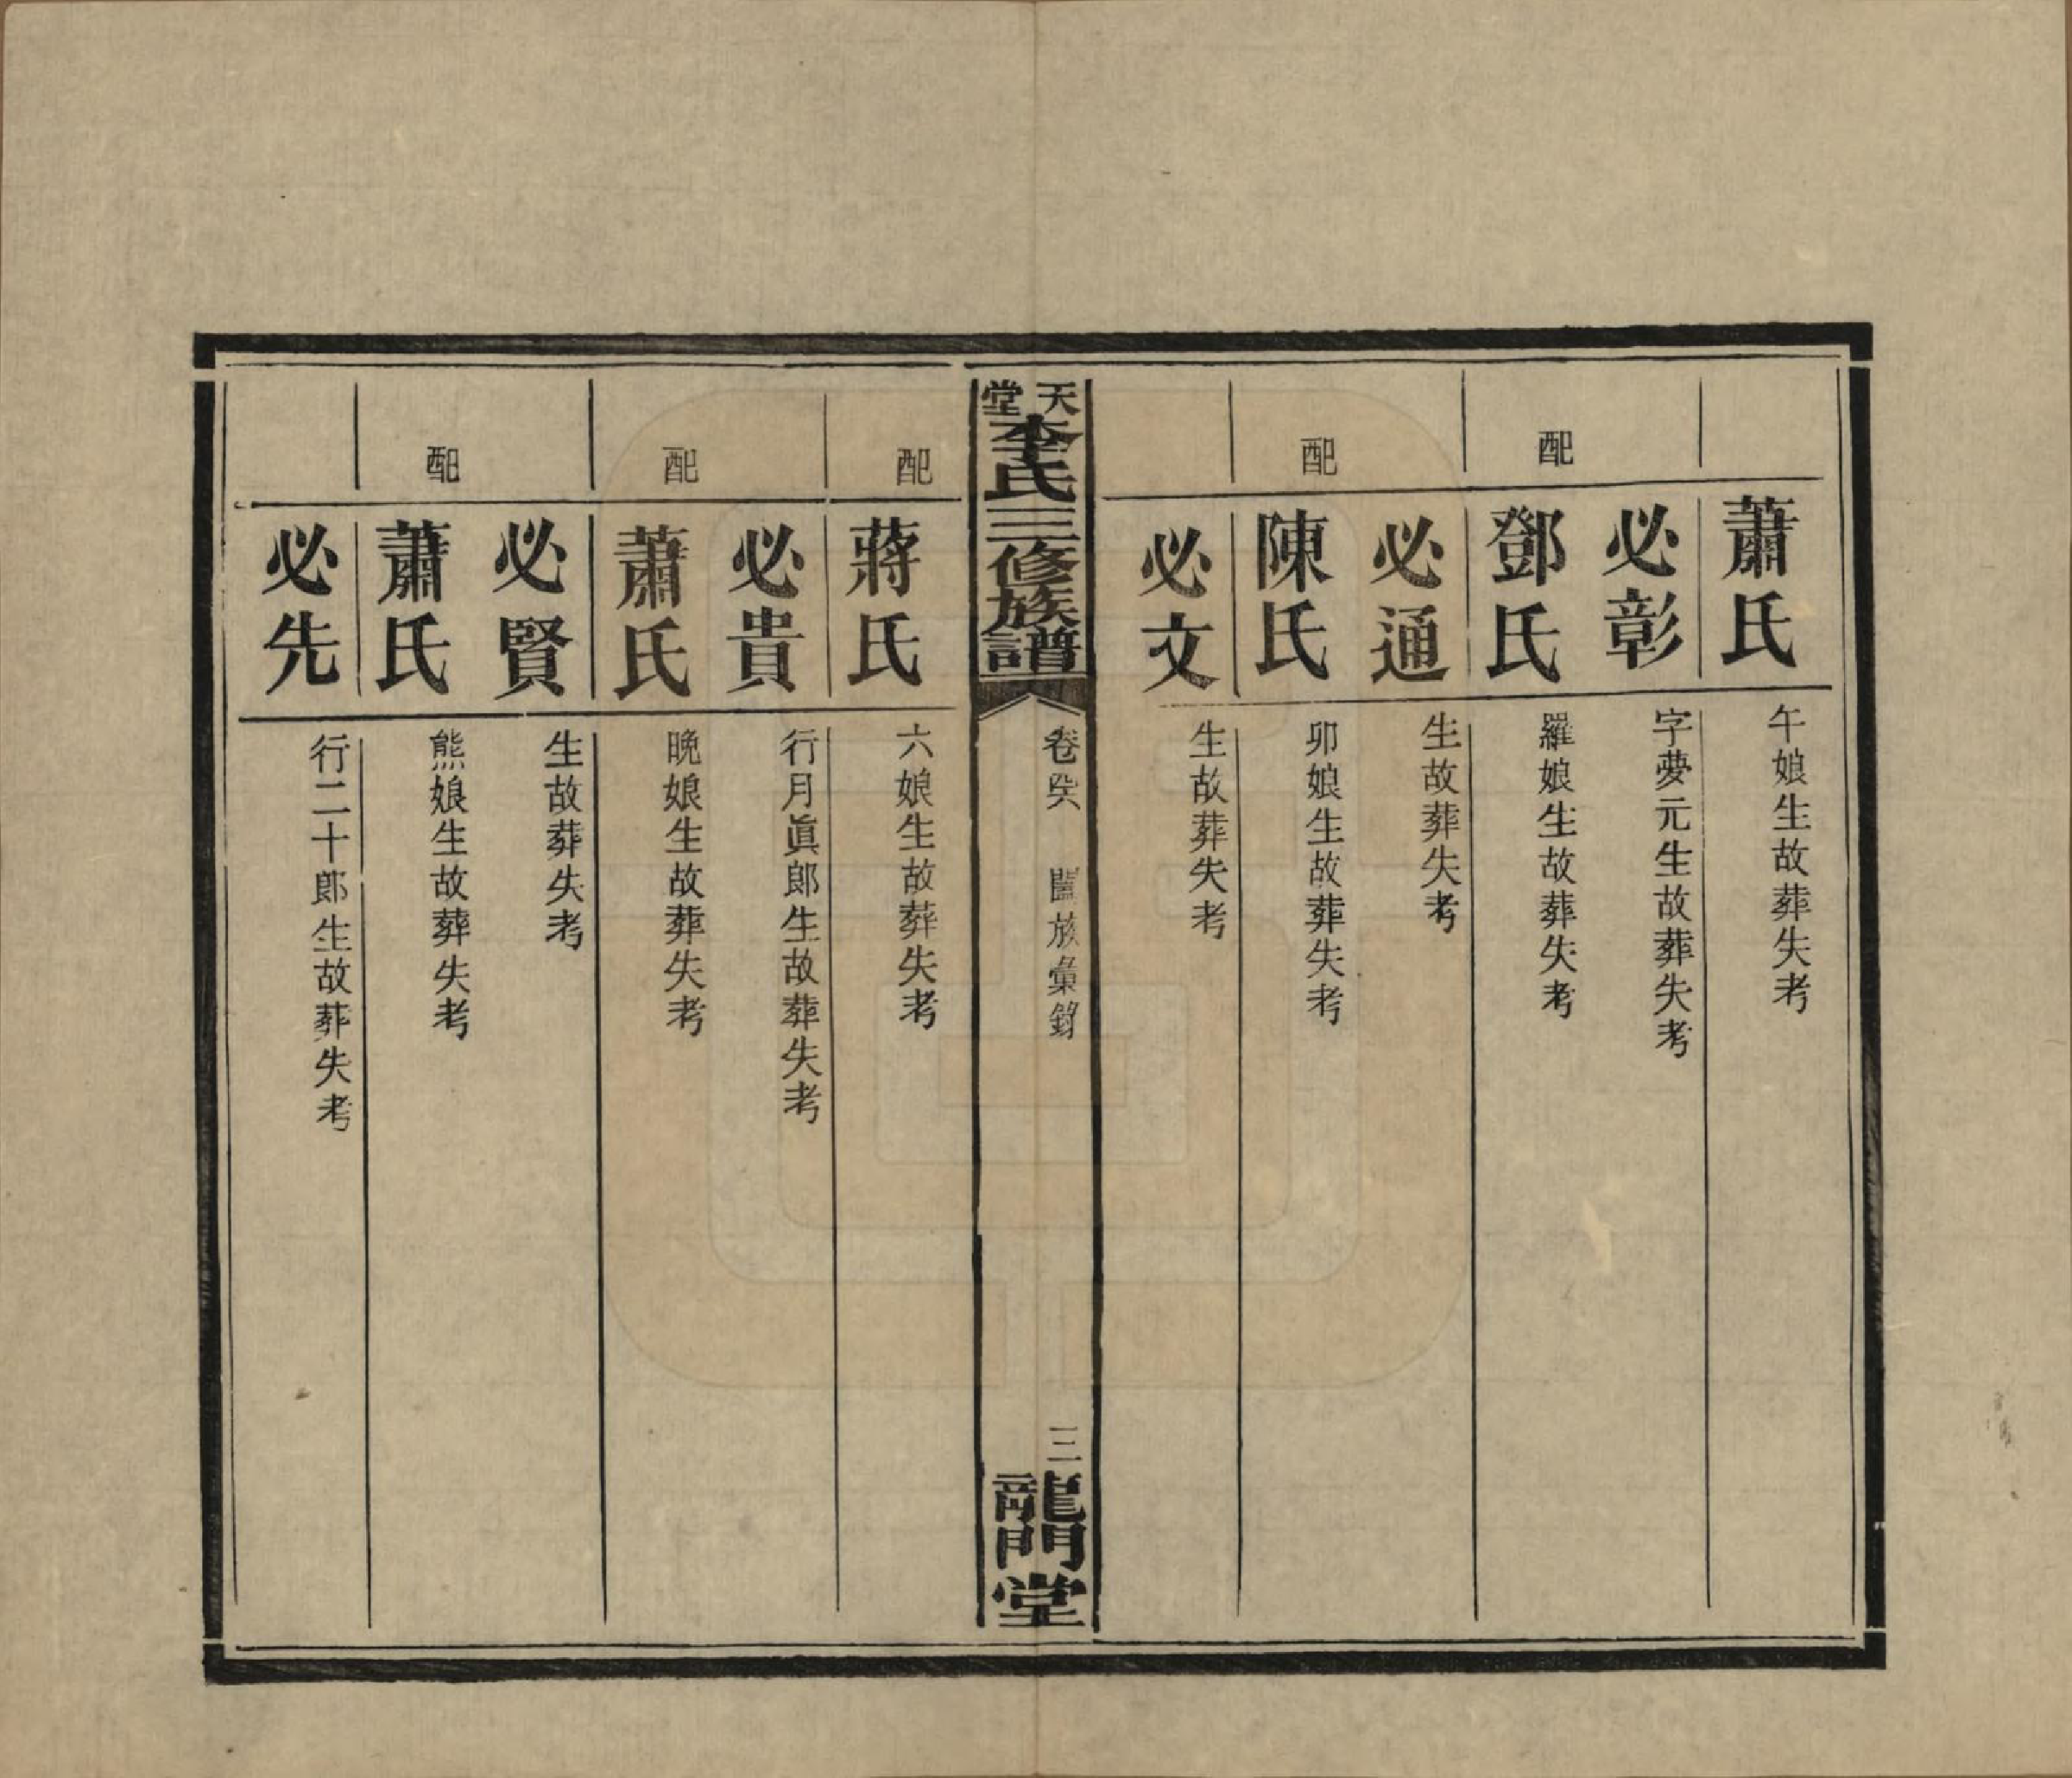 蕭氏 午娘生故葬失考
必彰 字夢元生故葬失考
配 鄧氏 羅娘生故葬失考
必通 生故葬失考
配 陳氏 卯娘生故葬失考
必文 生故葬失考
天堂 李氏三修族譜 卷 闔族彙錄 三 龍門堂
配 蔣氏 六娘生故葬失考
必貴 行月眞郎生故葬失考
配 蕭氏 晚娘生故葬失考
必賢 生故葬失考
配 蕭氏 熊娘生故葬失考
必先 行二十郎生故葬失考